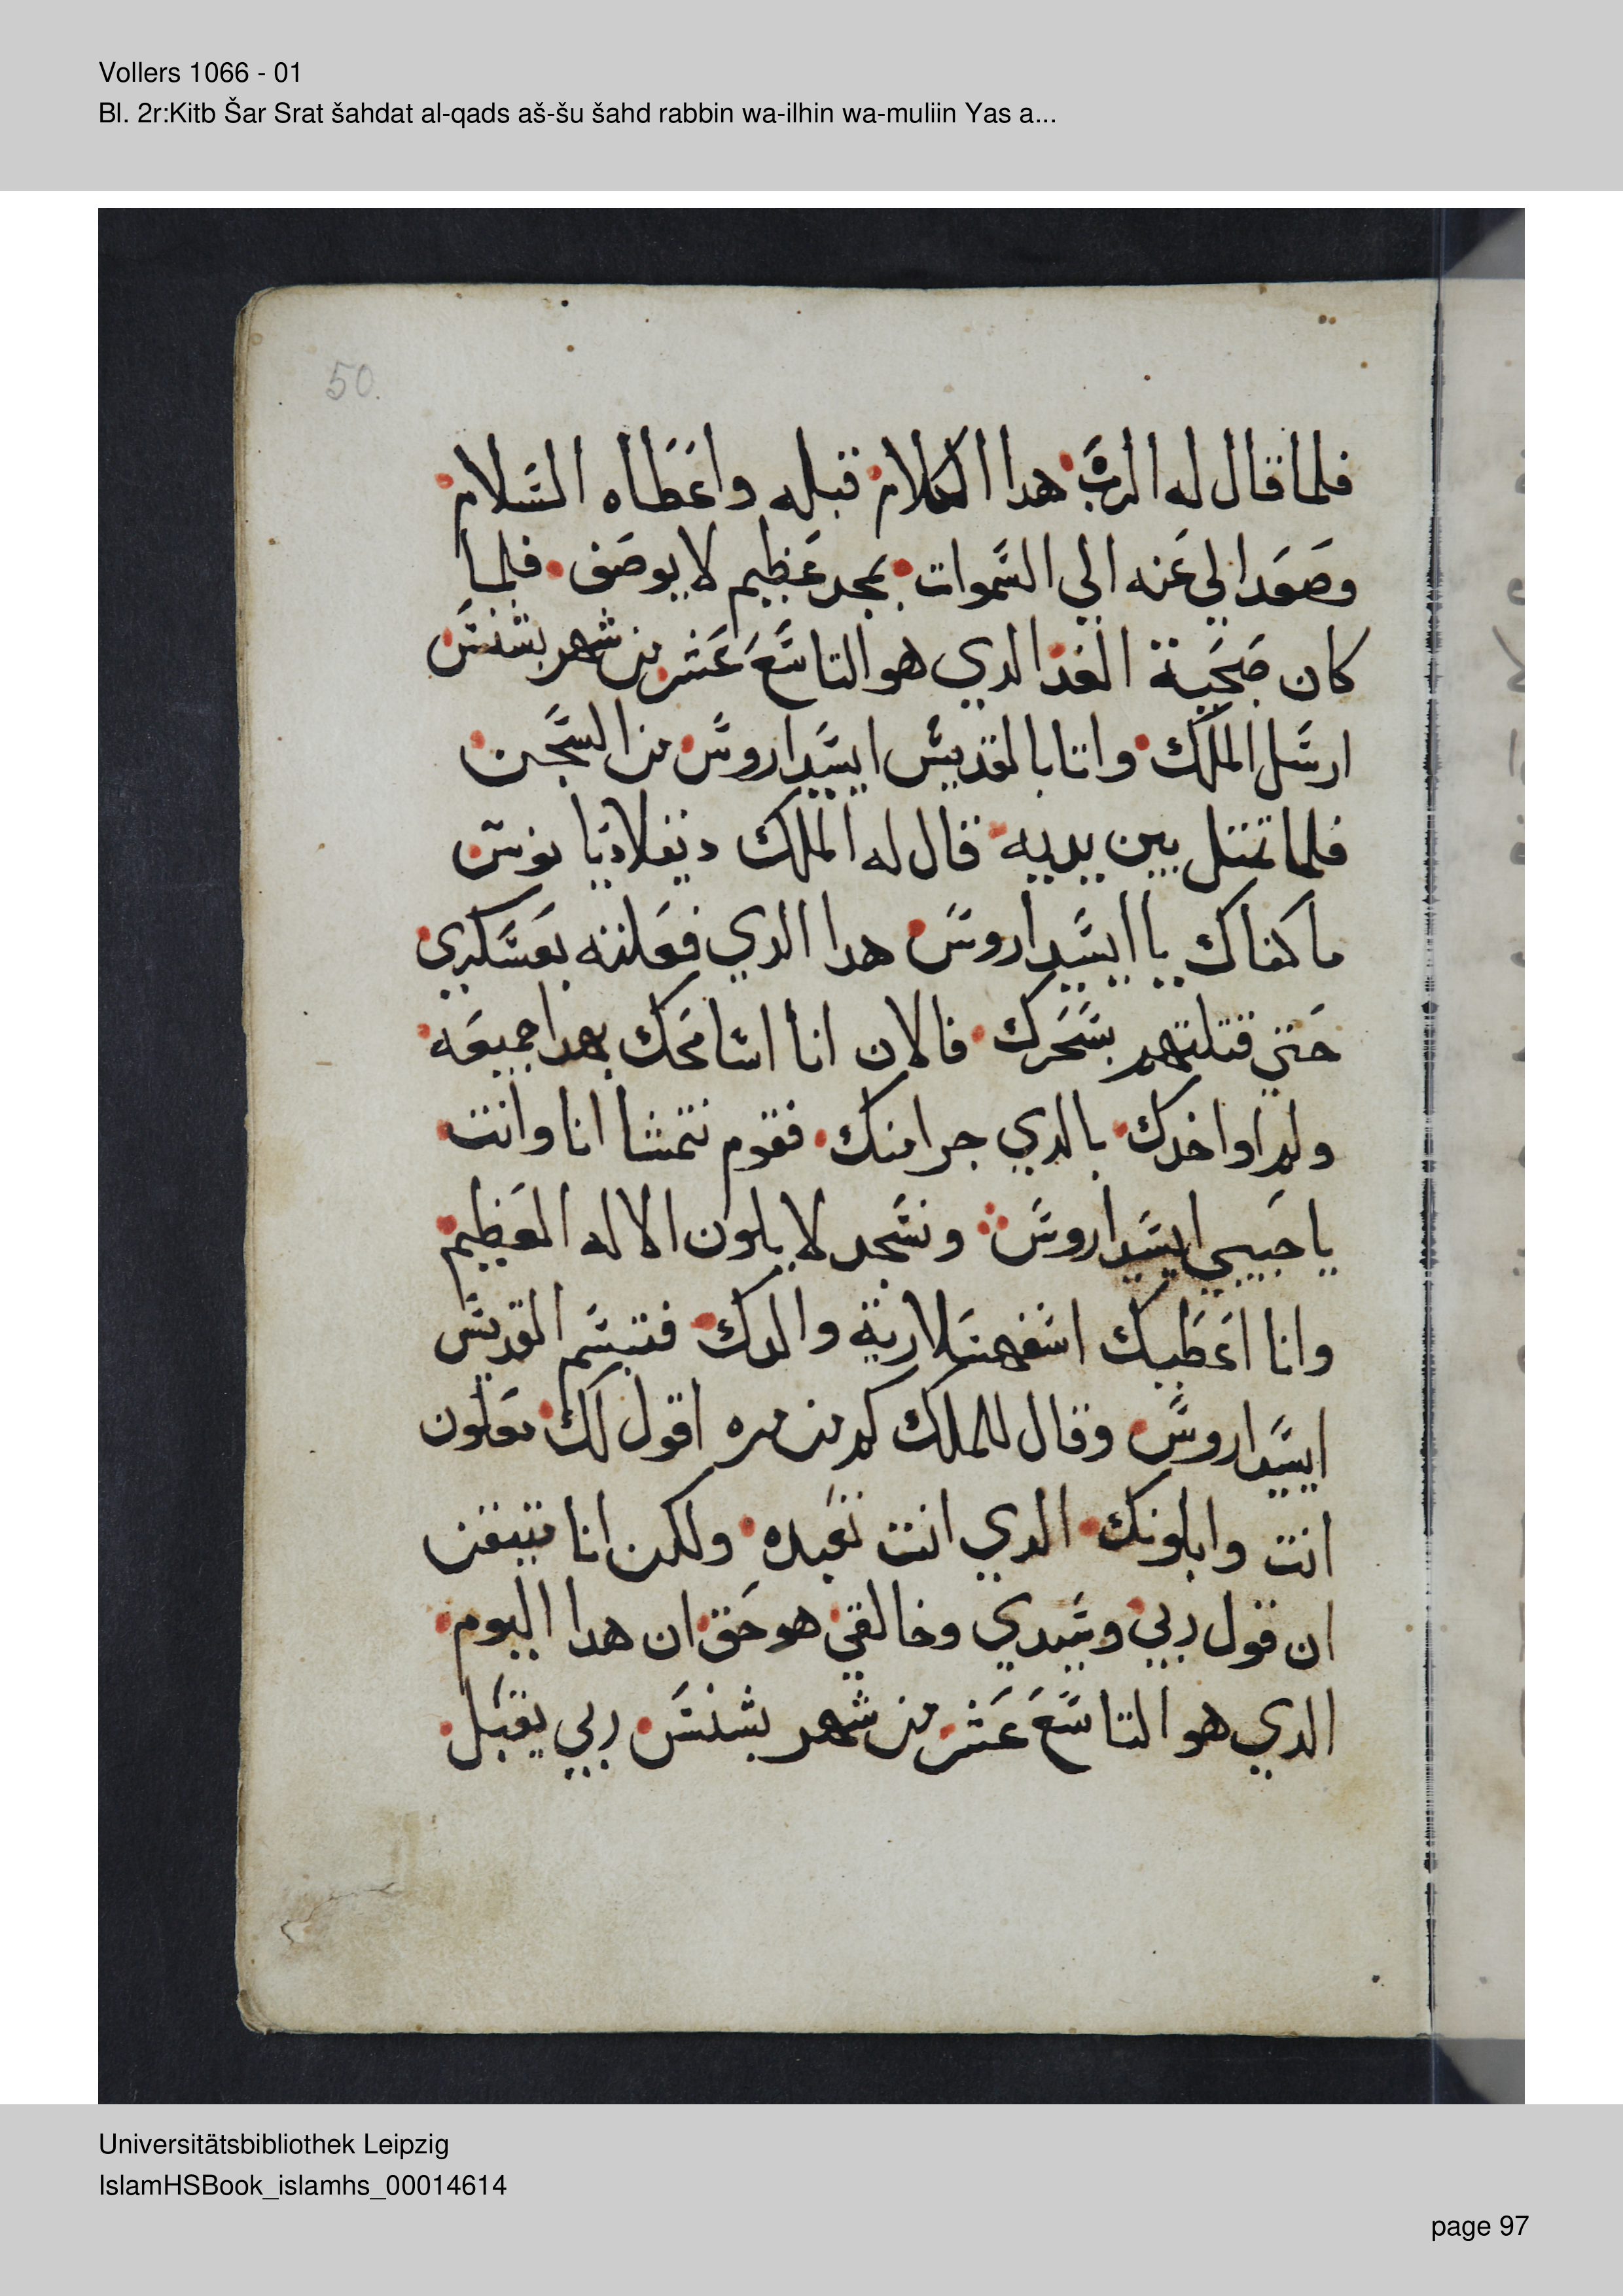 Vollers 1066 - 01
Bl. 2r:Kitb Šar Srat šahdat al-qads aš-šu šahd rabbin wa-ilhin wa-muliin Yas a...
50.
فلما قال له الرب هدا الكلام قبله واعطاه السلام
وصعد الي عنه الي السموات بمجد عظيم لا يوصف فلما
كان صحبية الغد الدي هو التاسع عشر من شهر بشنس
ارسل الملك واتا بالقديس ايسيداروس من السجن
فلما تمتل بين يديه قال له الملك ديقلاديانوس
ما كفاك يا ايسيداروس هدا الدي فعلته بعسكري
حتي قتلتهم بسحرك فالان انا اسامحك بهدا جميعه
ولم اواخدك بالدي جرا منك فقوم نتمشا انا وانت
يا حبيبي ايسيداروس ونسجد لابلون الاله العظيم
وانا اعطيك اسفهسلارية والدك فتبسم القديس
ايسيداروس وقال للملك كم من مره اقول لك ملعون
انت وابلونك الدي انت تعبده ولكن انا متيقن
ان قول ربي وسيدي وخالقي هو حق ان هدا اليوم
الدي هو التاسع عشر من شهر بشنس ربي يقبل
Universitätsbibliothek Leipzig
IslamHSBook_islamhs_00014614
page 97